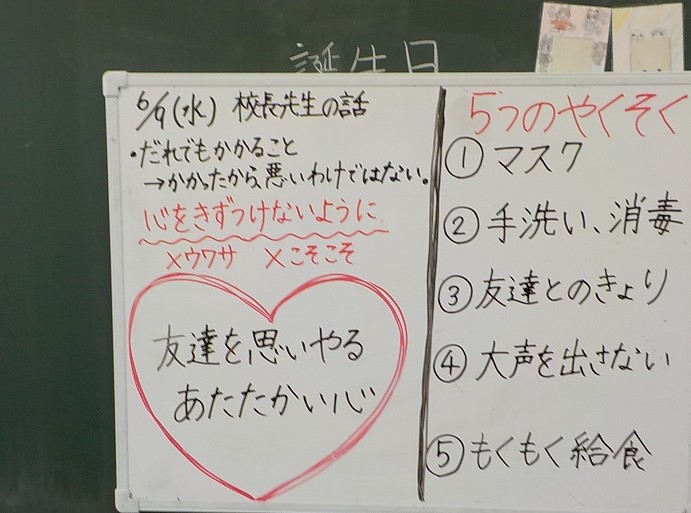 誕生日
6/9(水) 校長先生の話
・だれでもかかること
→かかったから、悪いわけではない。
心をきずつけないように
×ウワサ ×こそこそ
友達を思いやる
あたたかい心
5つのやくそく
① マスク
② 手洗い、消毒
③ 友達とのきょり
④ 大声を出さない
⑤ もくもく給食